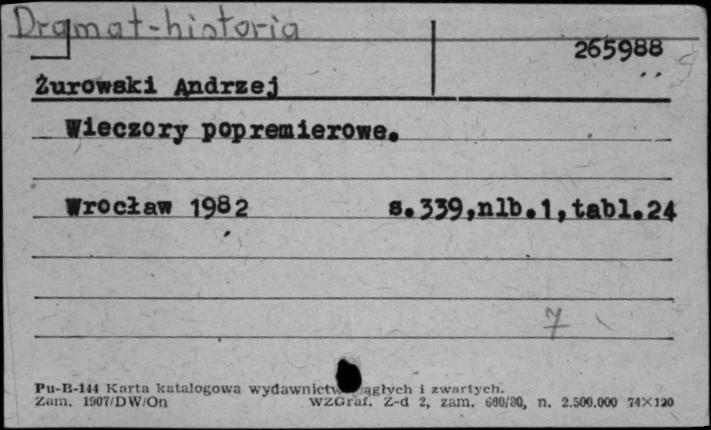 Dramat-historia
265988
Żurowski Andrzej
Wieczory popremierowe.
Wrocław 1982 s.339,nlb.1,tabl.24
7
Pu-B-144 Karta katalogowa wydawnictw ągłych i zwartych.
Zam. 1907/DW/On WZGraf. Z-d 2, zam. 660/80, n. 2.500.000 74×120